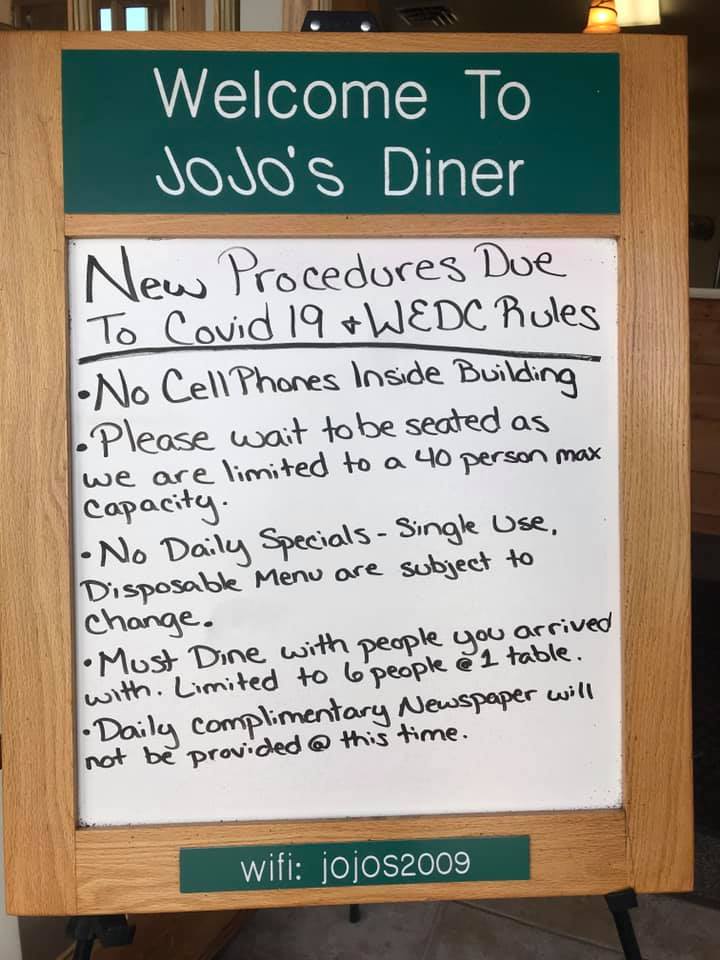 Welcome To
JoJo's Diner
New Procedures Due
To Covid 19 + WEDC Rules
• No Cell Phones Inside Building
• Please wait to be seated as
we are limited to a 40 person max
capacity.
• No Daily Specials - Single Use,
Disposable Menu are subject to
change.
• Must Dine with people you arrived
with. Limited to 6 people @ 1 table.
• Daily complimentary Newspaper will
not be provided @ this time.
wifi: jojos2009